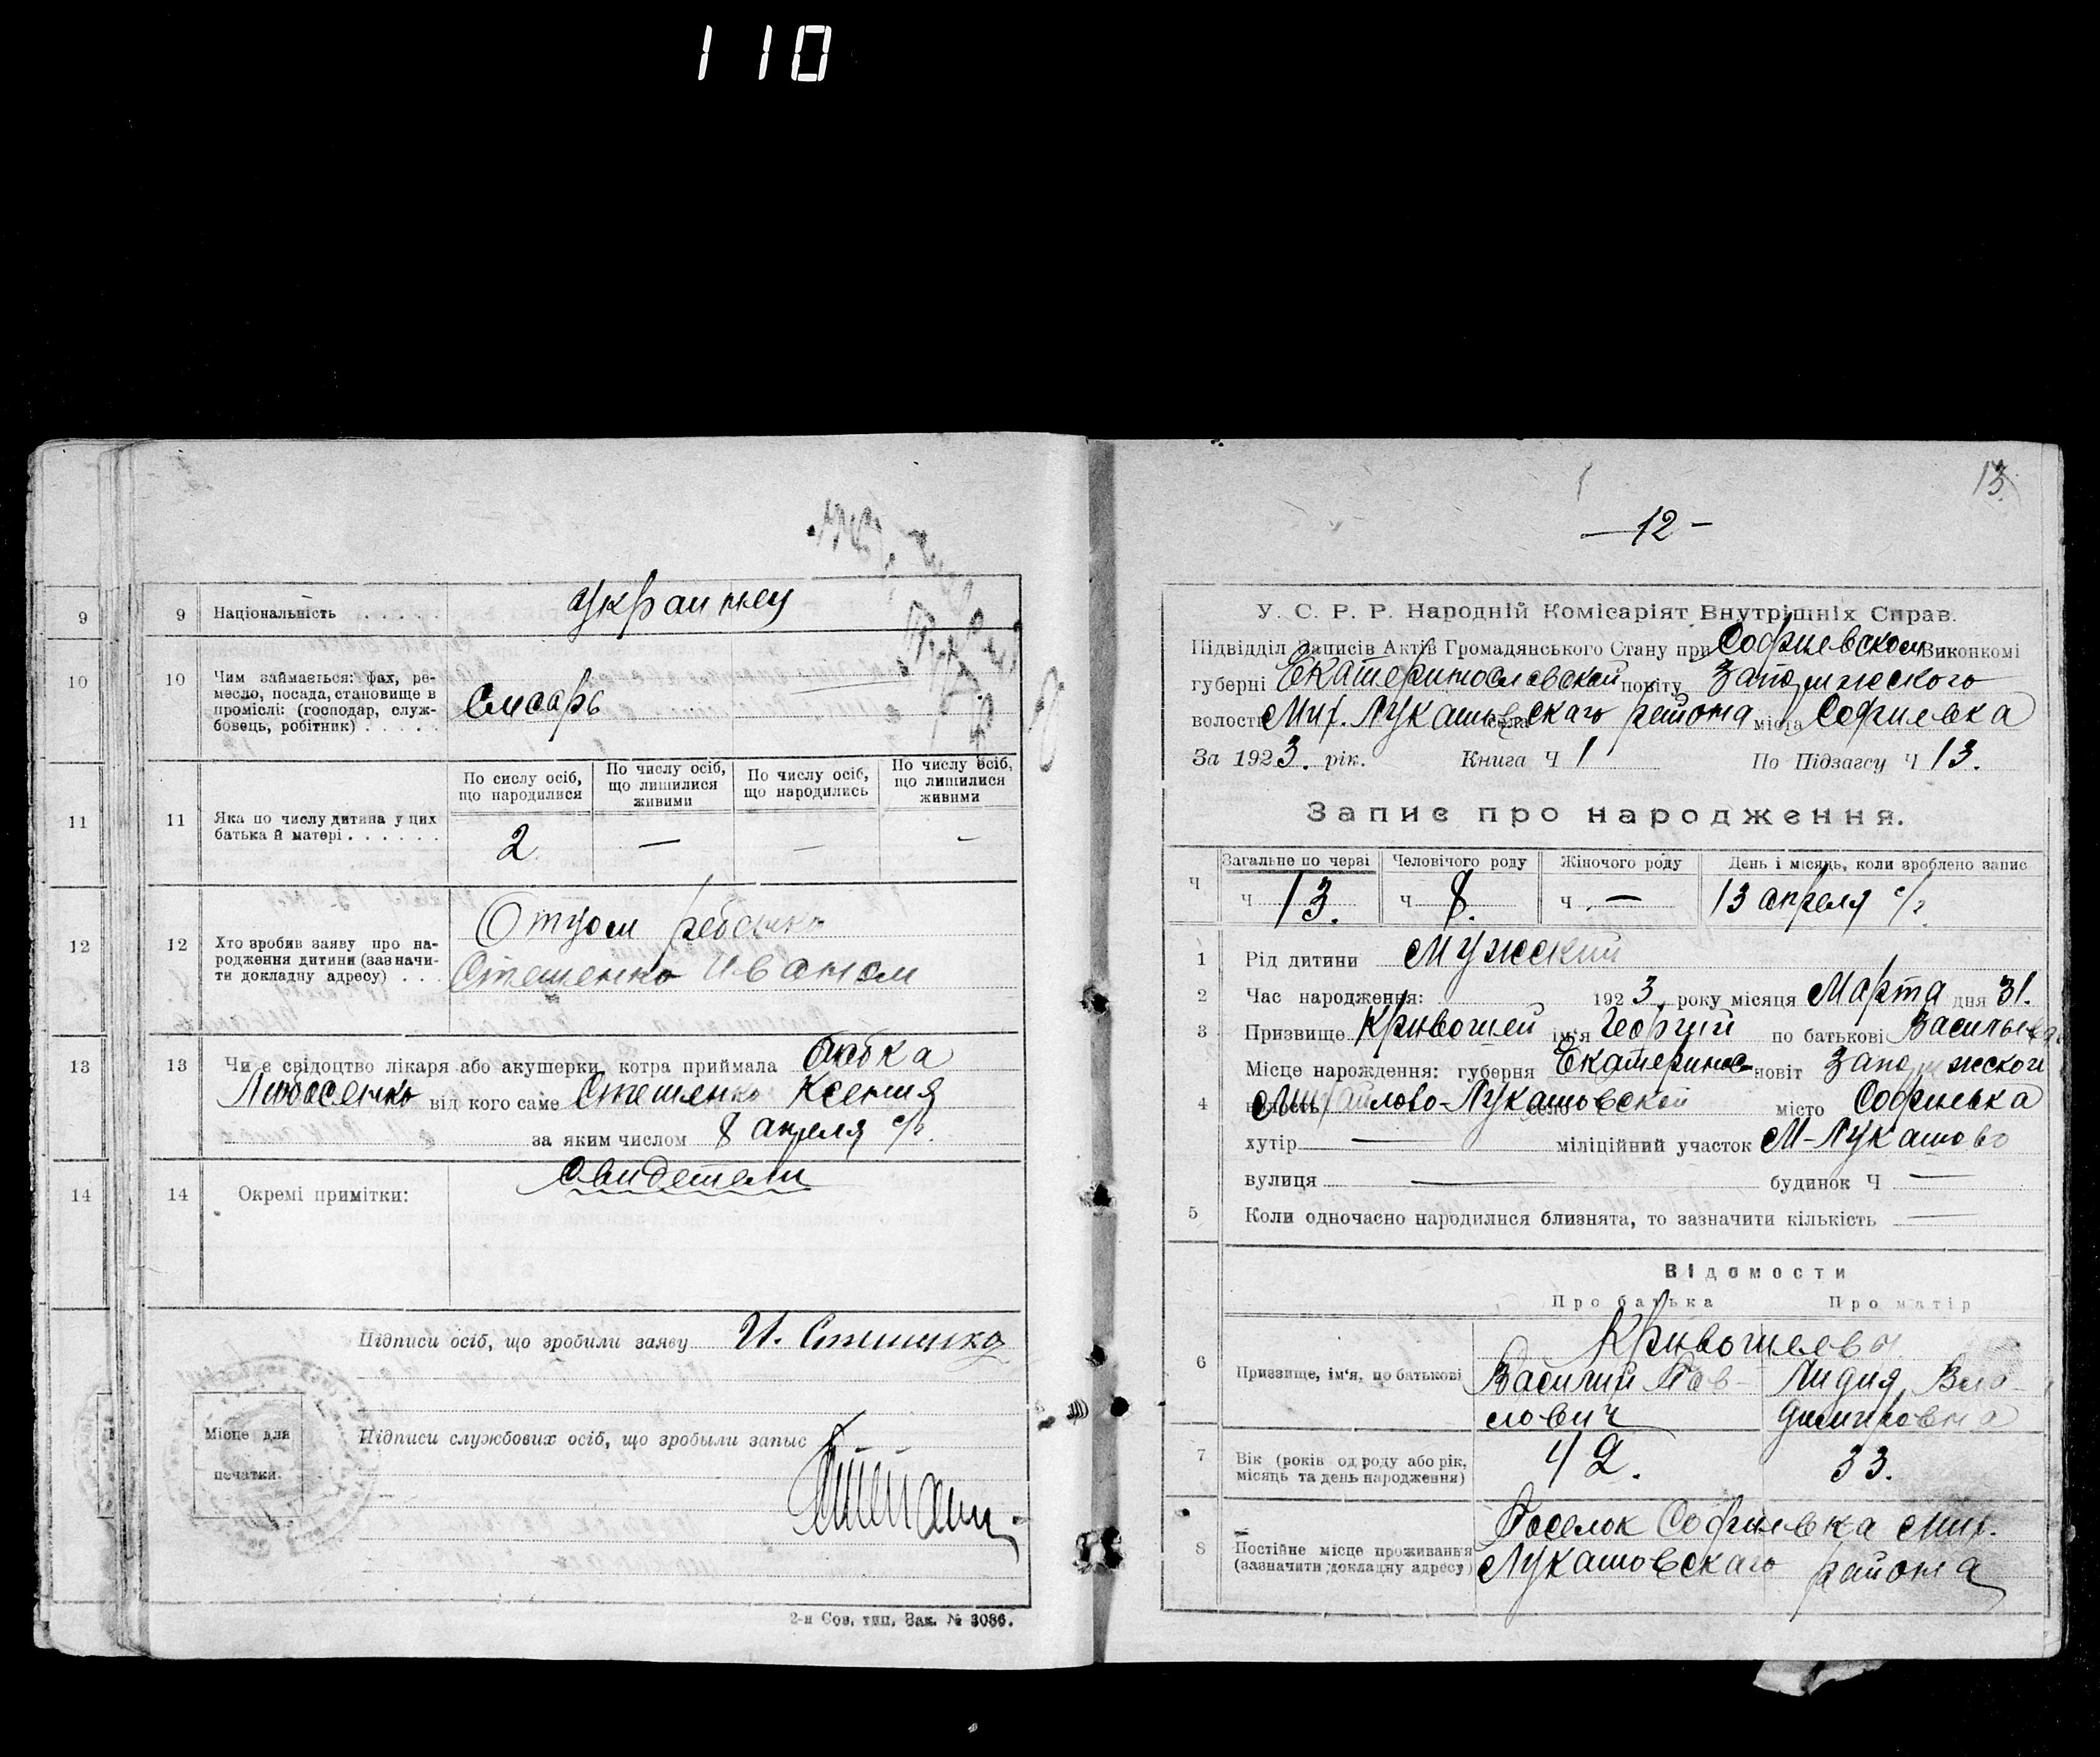 110
9 9 Національність . . . . . украинцы
10 10 Чим займається: фах, ре-
месло, посада, становище в
проміслі: (господар, служ-
бовець, робітник) . . . . .
Слюсарь
По сислу осіб,
що народилися
По числу осіб,
що лишилися
живими
По числу осіб,
що народились
По числу осіб,
що лишилися
живими
11 11 Яка по числу дитина у цих
батька й матері . . . . . . .
2 — — -
12 12 Хто зробив заяву про на-
родження дитини (зазначи-
ти докладну адресу) . . .
Отцом ребенка
Стешенко Иваном
13 13 Чи є свідоцтво лікаря або акушерки, котра приймала бабка
від кого саме Стешенко Ксения
за яким числом 8 апреля с/г.
14 14 Окремі примітки:
Свидетели
Підписи осіб, що зробили заяву И. Стешенко
Підписи службових осіб, що зробыли запыс
Місце для
печатки.
2-я Сов. тип. Зак. № 3086.
13
— 12 —
У. С. Р. Р. Народній Комісаріят Внутрішніх Справ.
Підвідділ Записів Актів Громадянського Стану при Софиевском Виконкомі
губерні Екатеринославской повіту Запорижского
волости Мих. Лукашевскаго района міста Софиевка
За 1923. рік. Книга Ч 1 По Підзагсу Ч 13.
Запис про народження.
Ч
Загальне по черзі Человічого роду Жіночого роду День і місяць, коли зроблено запис
ч 13. ч 8. ч — 13 апреля с/г.
1 Рід дитини Мужский
2 Час народження: 1923. року місяця Марта дня 31.
3 Призвище Кривошей ім'я Георгий по батькові Васильев
4 Місце нарождення: губерня Екатеринос- повіт Запорижской
волость Михайлово-Лукашовской село місто Софиевка
хутір — міліційний участок М-Лукашово
вулиця — будинок Ч —
5 Коли одночасно народилися близнята, то зазначити кількість —
Відомости
Про батька Про матір
6 Призвище, ім'я, по батькові
Кривошеевы
Василий Пав-
лович
Лидия Вла-
димировна
7 Вік (років од роду або рік,
місяць та день народження)
42. 33.
8 Постійне місце проживання
(зазначити докладну адресу)
Поселок Софиевка Мих.
Лукашовскаго района